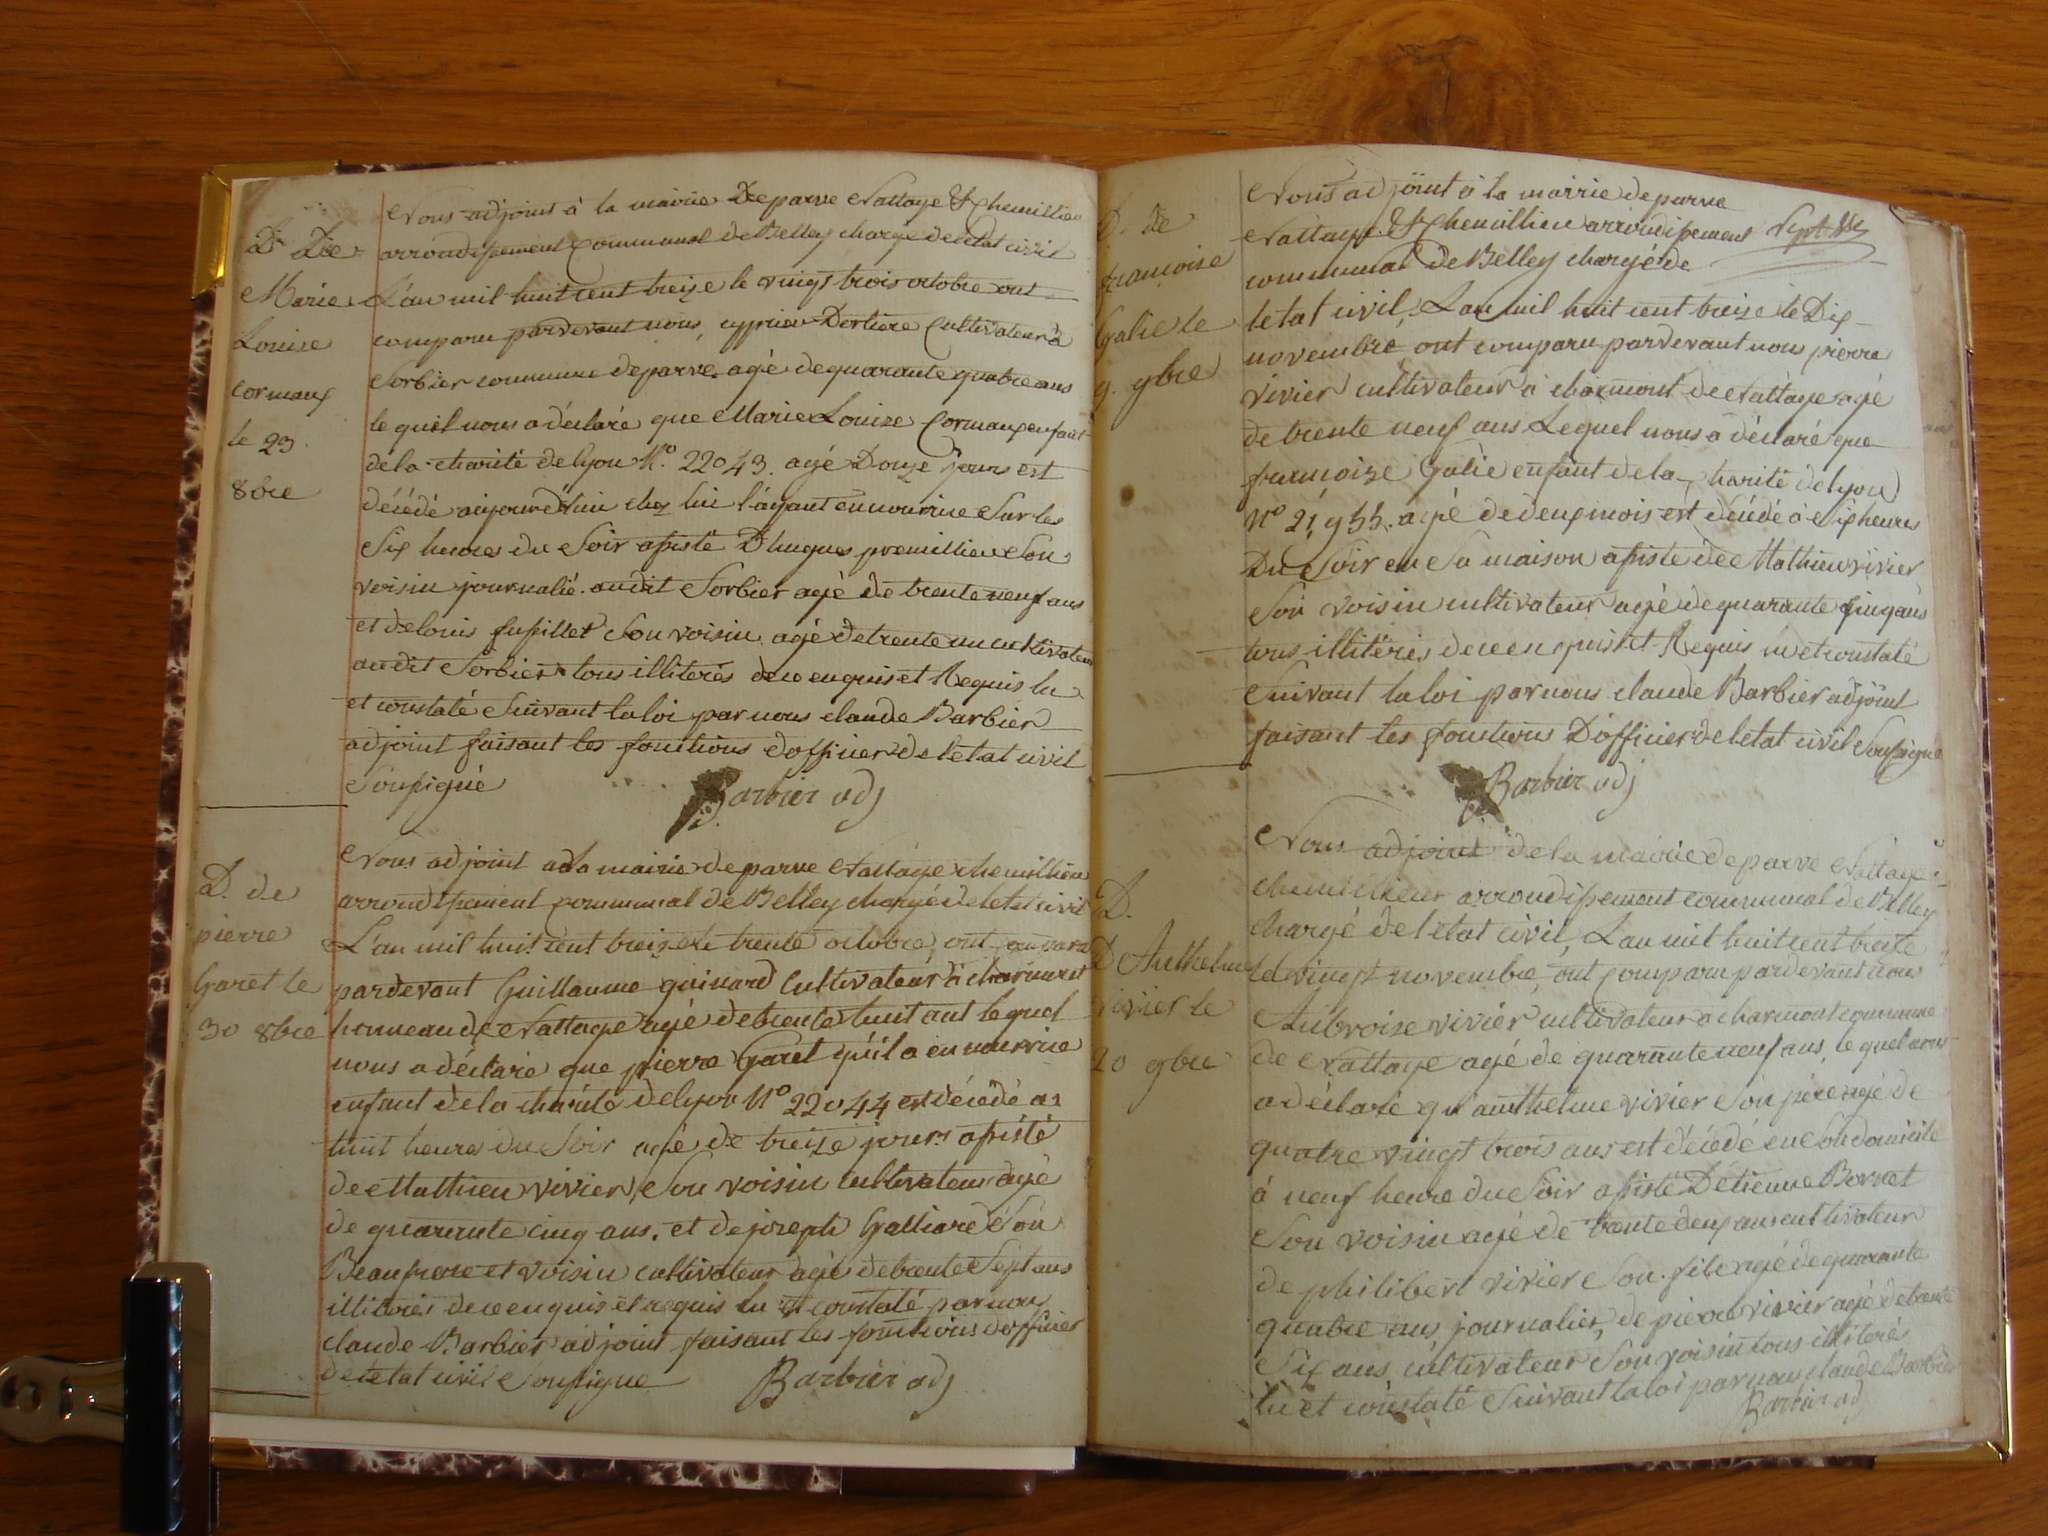 Nous adjoint à la mairie De parve Nattage & Chemillieu
arrondissement communal de Belley chargé de letat civil
D. De
Marie
Louise
cormaux
le 23
8bre
L'an mil huit cent treize le vingt trois octobre ont
comparu pardevant nous, cyprien Dertiere Cultivateur à
Sorbier commune de parve. agé de quarante quatre ans
le quel nous a déclaré que Marie Louise Cormaux enfant
de la charité de lyon N.º 22043. agé Douze jours est
décédé aujourd'hui chez lui l'ayant en nourrice Sur les
Six heures du Soir assisté D'hugues premillieu Son
voisin journalié. audit Sorbier agé de trente neuf ans
et de louis fusillet Son voisin agé de trente un cultivateur
au dit Sorbier tous illiterés de ce enquis et Requis lu
et constaté Suivant la loi par nous claude Barbier
adjoint faisant les fonctions d'officier de l'etat civil
Soussigné
Barbier adj
D. de
pierre
Garet le
30 8bre
Nous adjoint a la mairie de parve Nattage chemillieu
arrondissement communal de Belley chargé de letat civil
L'an mil huit cent treize le trente octobre, ont comparu
pardevant Guillaume guinard Cultivateur à charmont
hommeau de Nattage agé de trente huit ant le quel
nous a déclaré que pierre Garet qu'il a en nourrice
enfant de la charité de lyon Nº 22044 est décédé a
huit heures du Soir agé de treize jours assisté
de Mathieu vivier, Son voisin cultivateur agé
de quarante cinq ans, et de joseph Galliard Son
Beaufrere et voisin cultivateur agé de trente Sept ans
illiterés de ce enquis et requis lu et constaté par nous
claude Barbier adjoint faisant les fonctions d'officier
de letat civil Soussigne
Barbier adj
D. de
francoise
Galie le
9. 9bre
Nous adjoint à la mairie de parve
Nattage & Chemillieu arrondissement
communal de Belley chargé de
letat civil, L'an mil huit cent treize le Dix
novembre ont comparu pardevant nous pierre
vivier cultivateur à charmont de Nattage agé
de trente neuf ans Lequel nous a déclaré que
francoise Galie enfant de la charité de lyon
Nº 21,955. agé de deux mois est décédé à Six heures
Du Soir en Sa maison assisté de Mathieu vivier
Son voisin cultivateur agé de quarante cinq ans
tous illiterés de ce en quis et Requis lu et constaté
Suivant la loi par nous claude Barbier adjoint
faisant les fonctions D'officier de letat civil Soussigné
Barbier adj
D.
D'Anthelme
vivier le
20 9bre
Nous adjoint de la mairie de parve Nattage
chemillieu arrondissement communal de Belley
chargé de l'état civil, L'an mil huit cent treize
le vingt novembre, ont comparu pardevant nous
Ambroise vivier cultivateur a charmont commune
de Nattage agé de quarante neuf ans, le quel nous
a déclaré qu'anthelme vivier Son père agé de
quatre vingt trois ans est décédé en Son domicile
à neuf heure du Soir assisté D'étienne Bornet
Son voisin agé de trente deux ans cultivateur
de philibert vivier Son fils agé de quarante
quatre ans journalier, de pierre vivier agé de trente
Six ans, cultivateur Son voisin tous illiterés
lu et constaté Suivant la loi par nous claude Barbier
Barbier adj